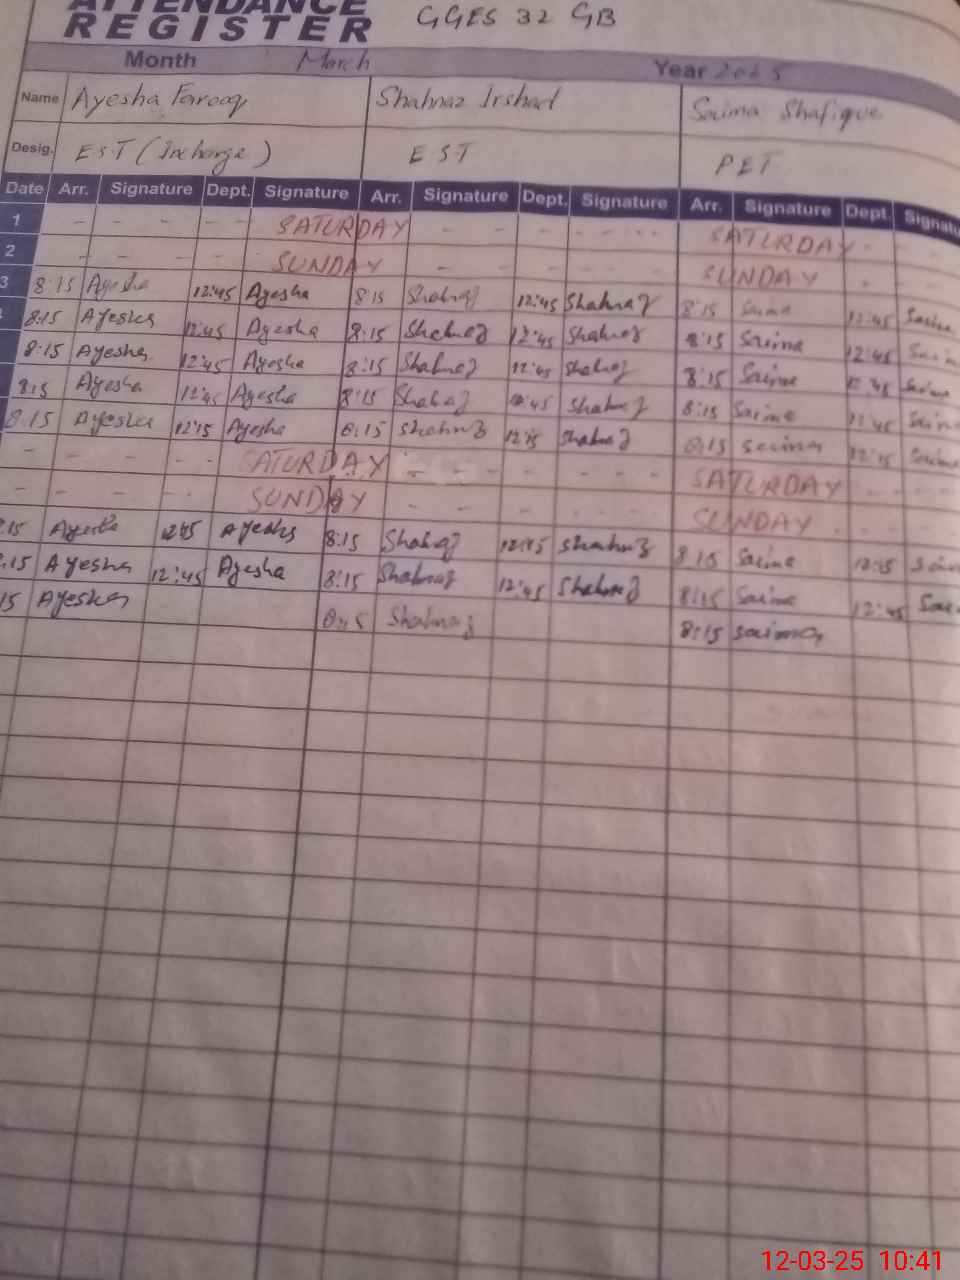 ATTENDANCE
REGISTER GGES 32 GB
Month March Year 2025
Name Ayesha Farooq Shahnaz Irshad Saima Shafique
Desig. EST (Incharge) EST PET
Date Arr. Signature Dept. Signature Arr. Signature Dept. Signature Arr. Signature Dept. Signatu
1 - - - - - SATURDAY - - - - - - SATURDAY - -
2 - - - - - SUNDAY - - - - - - SUNDAY - -
3 8:15 Ayesha 12:45 Ayesha 8:15 Shahnaz 12:45 Shahnaz 8:15 Saima 12:45 Saima
8:15 Ayesha 12:45 Ayesha 8:15 Shahnaz 12:45 Shahnaz 8:15 Saima 12:45 Saima
8:15 Ayesha 12:45 Ayesha 8:15 Shahnaz 12:45 Shahnaz 8:15 Saima 12:45 Saima
8:15 Ayesha 12:45 Ayesha 8:15 Shahnaz 12:45 Shahnaz 8:15 Saima 12:45 Saima
8:15 Ayesha 12:15 Ayesha 8:15 Shahnaz 12:15 Shahnaz 8:15 Saima 12:15 Saima
- - - - - SATURDAY - - - - - SATURDAY - -
- - - - - SUNDAY - - - - - SUNDAY - -
:15 Ayesha 12:45 Ayesha 8:15 Shahnaz 12:45 Shahnaz 8:15 Saima 12:45 Sai
:15 Ayesha 12:45 Ayesha 8:15 Shahnaz 12:45 Shahnaz 8:15 Saima 12:45 Sai
15 Ayesha 8:15 Shahnaz 8:15 Saima
12-03-25 10:41